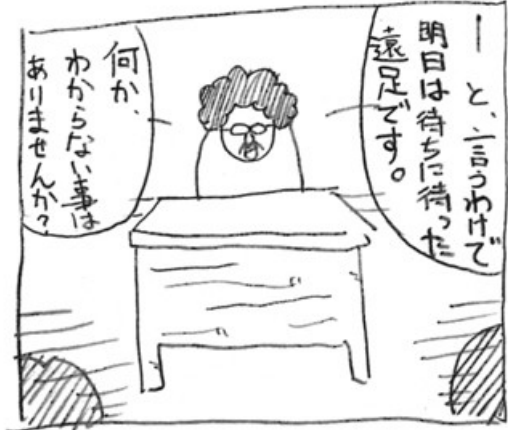 ― と、言うわけで
明日は待ちに待った
遠足です。
何か、
わからない事は
ありませんか?